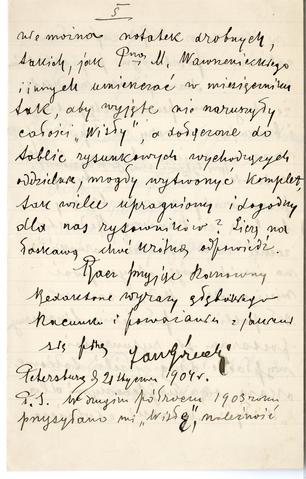 5
nie można notatek drobnych,
takich, jak Pna M. Wawrzenieckiego
i innych umieszczać w miesięczniku
tak, aby wyjęte nie naruszyły
całości „Wisły", a dołączone do
tablic rysunkowych wychodzących
oddzielnie, mogły wytworzyć komplet,
tak wielce upragniony i dogodny
dla nas rysowników? Liczę na
łaskawą choć krótką odpowiedź.
Racz przyjąć Szanowny
Redaktorze wyrazy głębokiego
szacunku i poważania z jakiemi
się piszę
Jan Górecki
Petersburg d. 21 stycznia 1904 r.
P.S. W drugim półroczu 1903 roku
przysyłano mi „Wisłę", należność